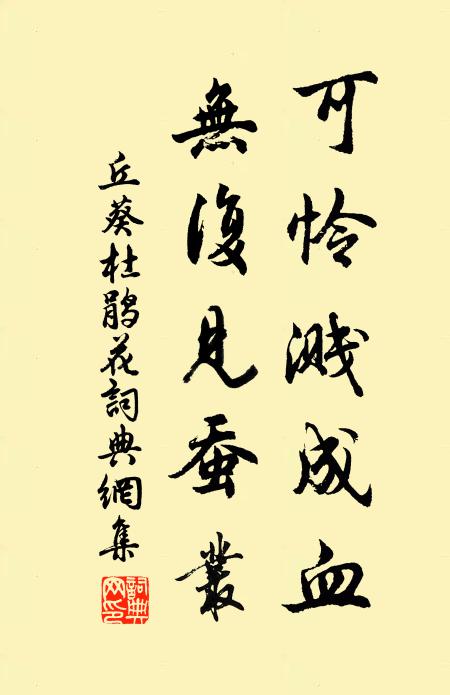 可怜溅成血
無復見蚕叢
丘葵杜鹃花詞典網集
詞典網印